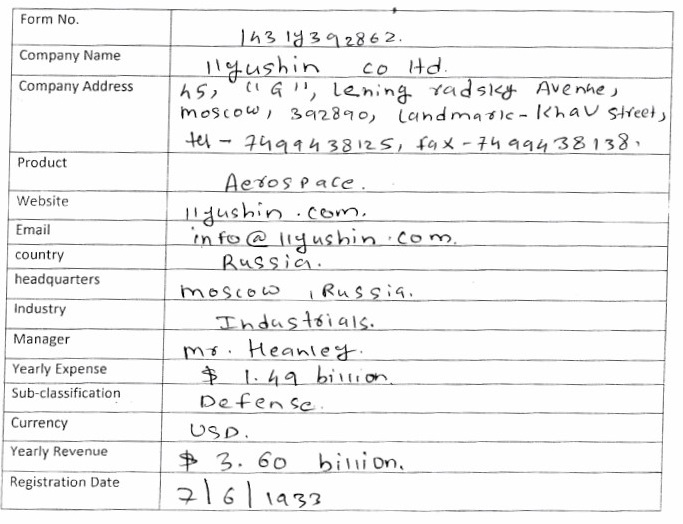 Form No.
1431y392862.
Company Name
Ilyushin co ltd.
Company Address
45, "G", Lening radsky Avenue,
moscow, 392890, Landmark - Khav street,
tel - 7499438125, fax - 7499438138.
Product
Aerospace.
Website
Ilyushin.com.
Email
info@Ilyushin.com.
country
Russia.
headquarters
moscow , Russia.
Industry
Industrials.
Manager
mr. Heanley.
Yearly Expense
$ 1.49 billion.
Sub-classification
Defense.
Currency
USD.
Yearly Revenue
$ 3.60 billion.
Registration Date
7/6/1933